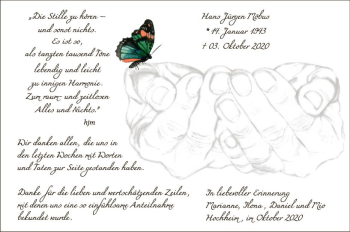 „Die Stille zu hören –
und sonst nichts.
Es ist so,
als tanzten tausend Töne
lebendig und leicht
zu innigen Harmonie.
Zum raum- und zeitlosen
Alles und Nichts."
hjm
Wir danken allen, die uns in
den letzten Wochen mit Worten
und Taten zur Seite gestanden haben.
Danke für die lieben und wertschätzenden Zeilen,
mit denen uns eine so einfühlsame Anteilnahme
bekundet wurde.
Hans Jürgen Möbus
* 14. Januar 1943
† 03. Oktober 2020
In liebevoller Erinnerung
Marianne, Ilona, Daniel und Nio
Hochheim, im Oktober 2020